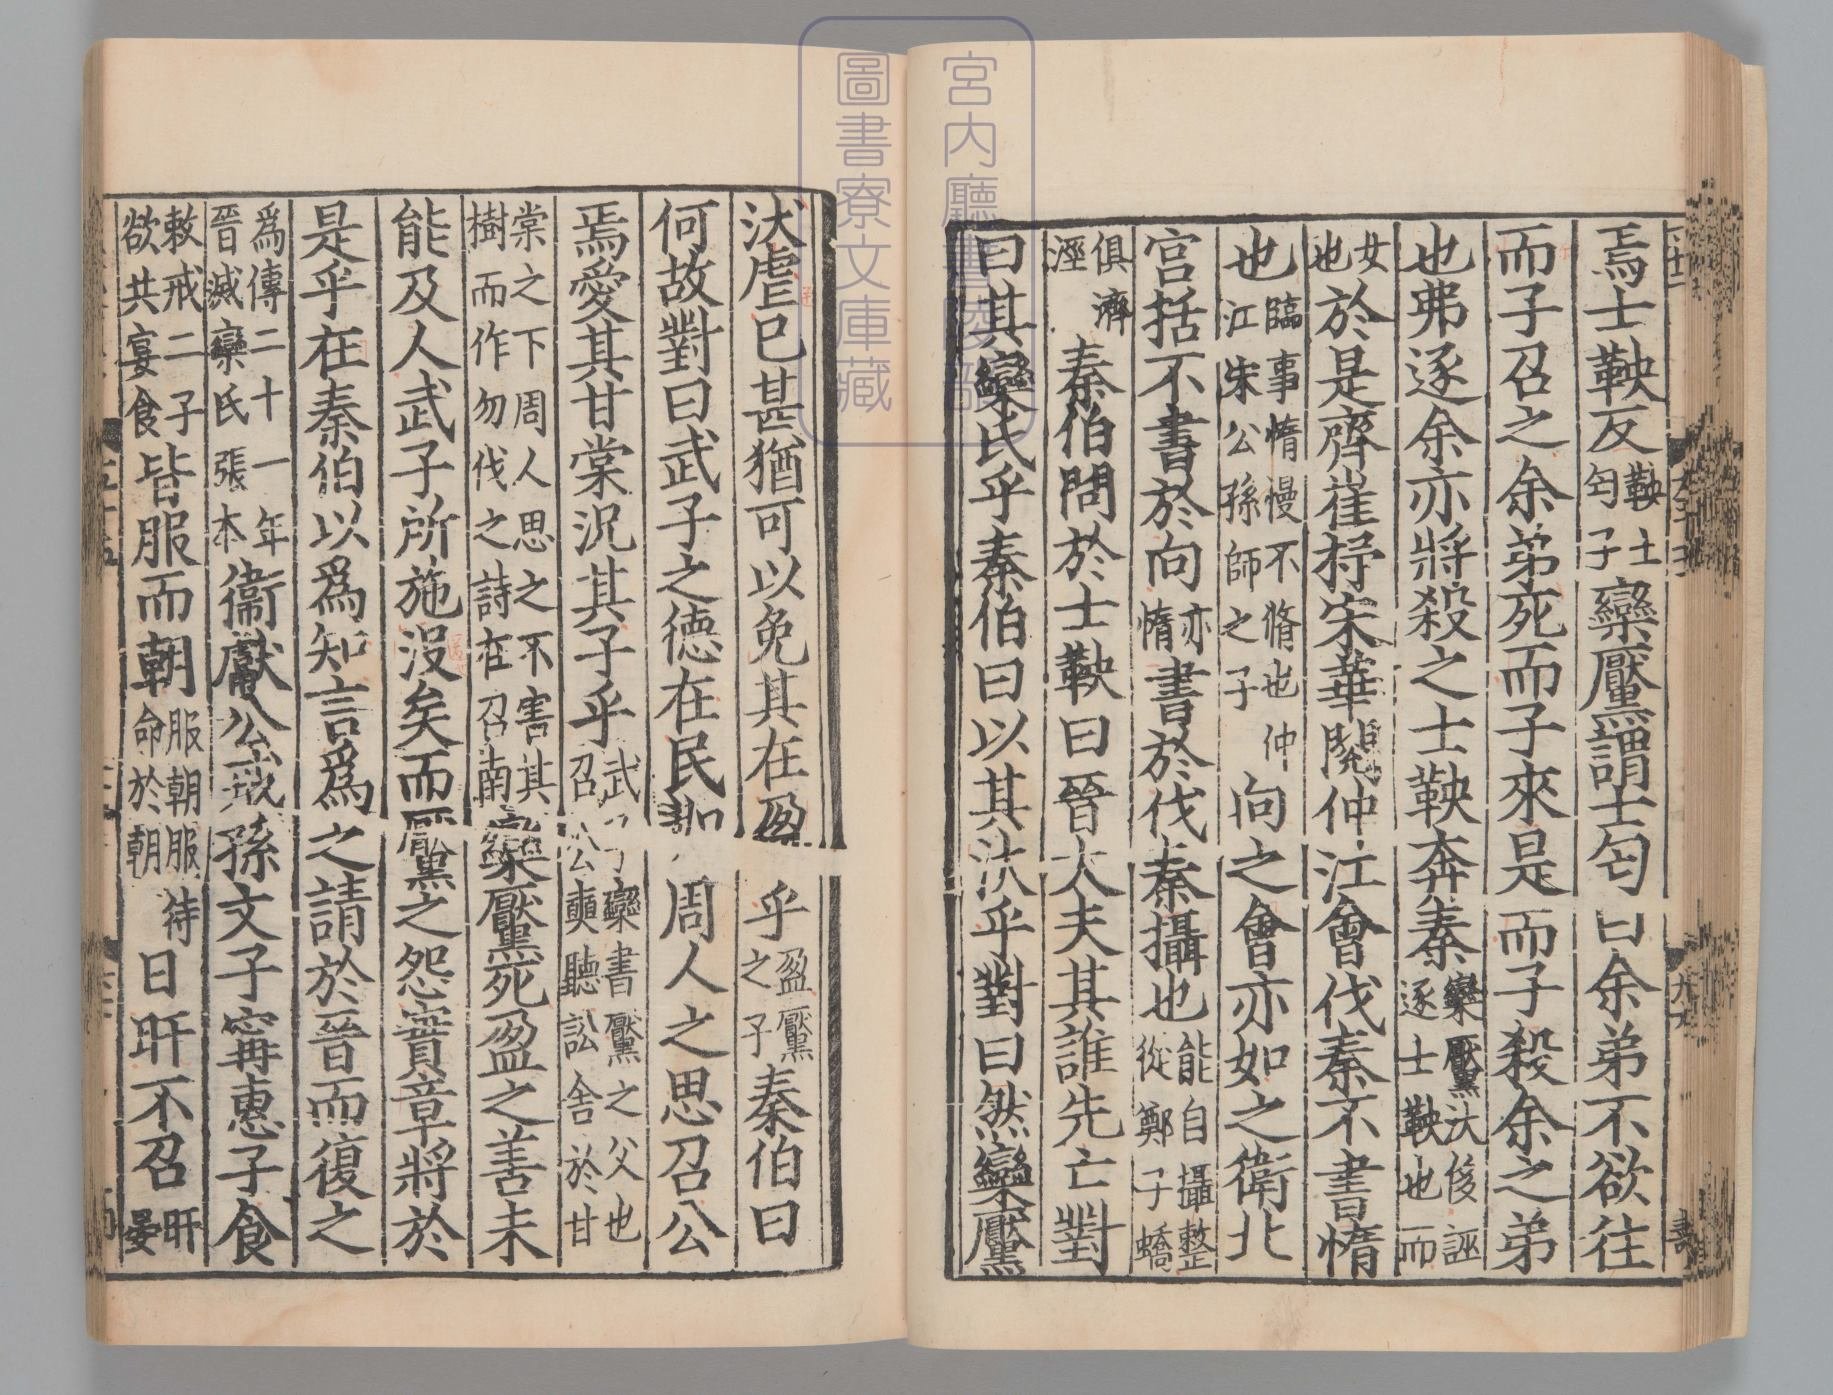 焉士鞅反鞅士匄子欒黶謂士匄曰余弟不欲往
而子召之余弟死而子來是而子殺余之弟
也弗逐余亦將殺之士鞅奔秦欒黶汏侈誣逐士鞅也而
女也於是齊崔杼宋華閱仲江會伐秦不書惰
也臨事惰慢不脩也仲江宋公孫師之子向之會亦如之衛北
宮括不書於向亦惰書於伐秦攝也能自攝整從鄭子蟜
俱濟涇秦伯問於士鞅曰晉大夫其誰先亡對
曰其欒氏乎秦伯曰以其汏乎對曰然欒黶
汏虐已甚猶可以免其在盈乎盈黶之子秦伯曰
何故對曰武子之德在民如周人之思召公
焉愛其甘棠況其子乎武子欒書黶之父也召公奭聽訟舍於甘
棠之下周人思之不害其樹而作勿伐之詩在召南欒黶死盈之善未
能及人武子所施沒矣而黶之怨實章將於
是乎在秦伯以爲知言爲之請於晉而復之
爲傳二十一年晉滅欒氏張本衛獻公戒孫文子甯惠子食
敕戒二子欲共宴食皆服而朝服朝服待命於朝日旰不召旰晏
宮內廳書陵部
圖書寮文庫藏